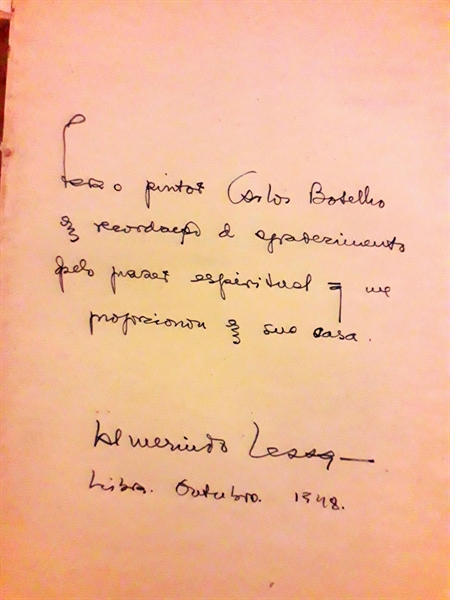 Para o pintor Carlos Botelho
em recordação e agradecimento
pelo prazer espiritual q me
proporcionou em sua casa.
Almerindo Lessa
Lisboa. Outubro. 1948.